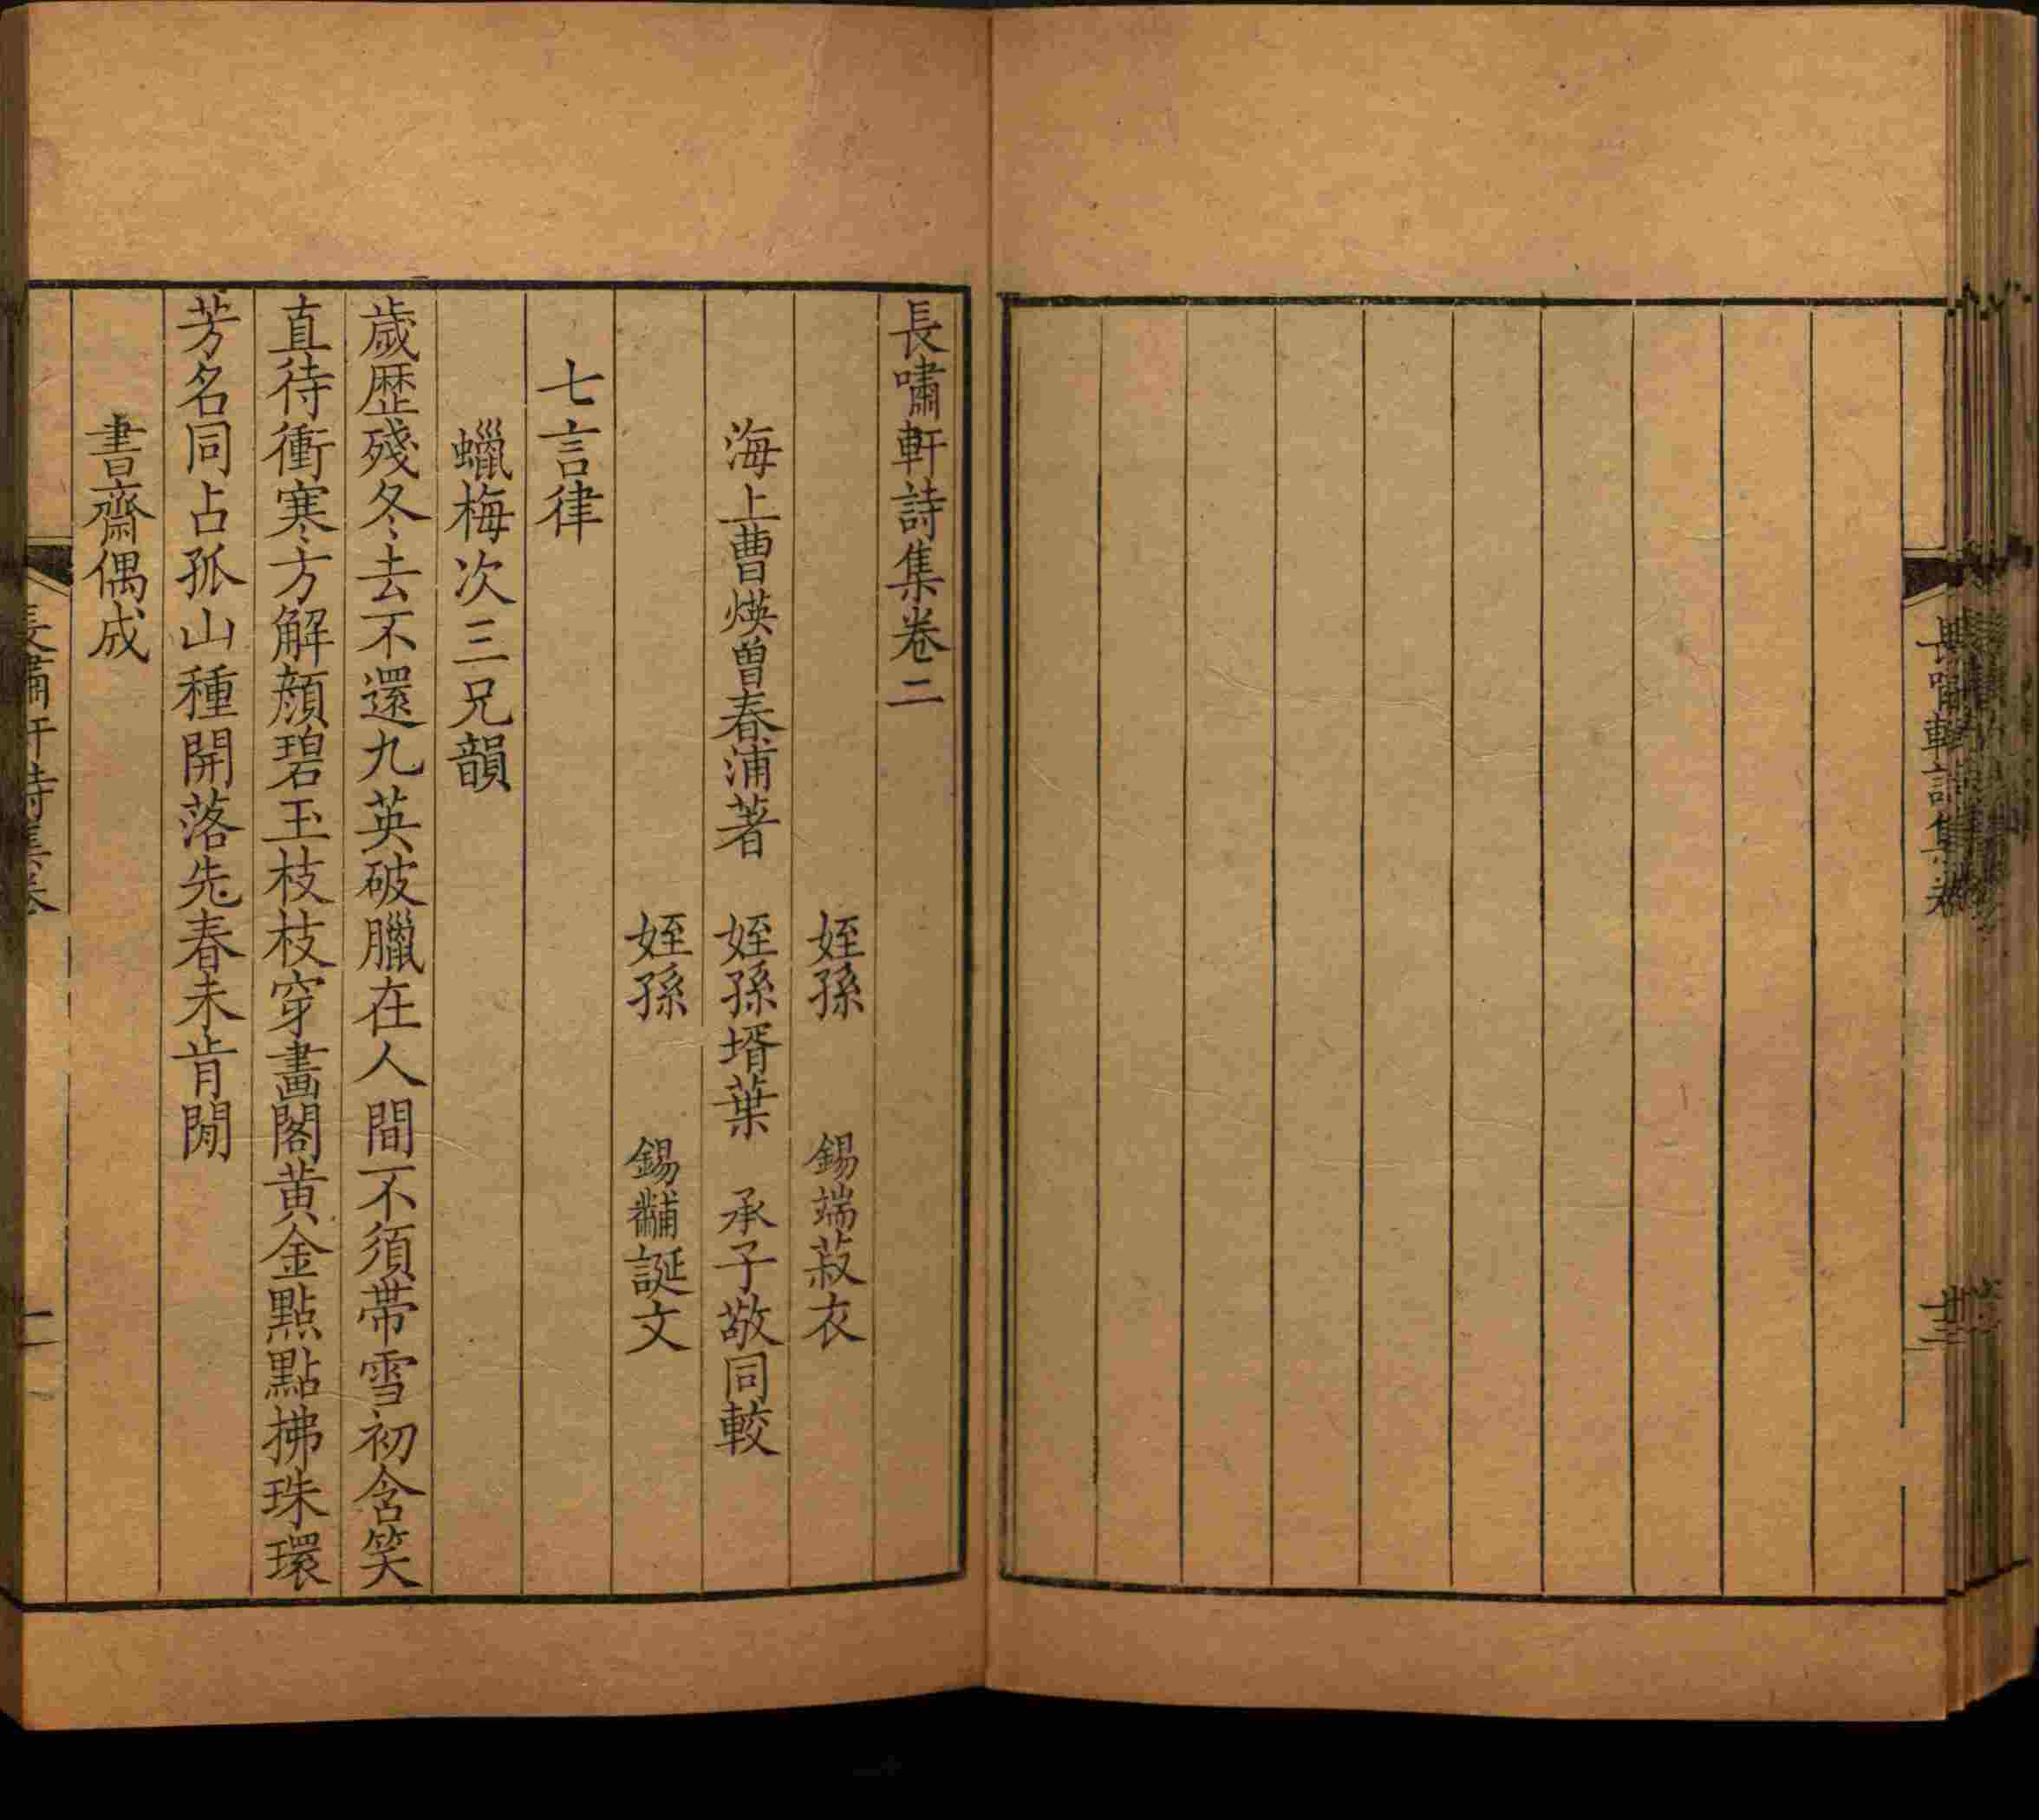 長嘯軒詩集卷
長嘯軒詩集卷二
姪孫　錫端菽衣
海上曹煐曾春浦著　姪孫壻葉　承子敬同較
姪孫　錫黼誕文
七言律
蠟梅次三兄韻
歲歷殘冬去不還九英破臘在人間不須帶雪初含笑
直待衝寒方解顏碧玉枝枝穿畫閣黄金點點拂珠環
芳名同占孤山種開落先春未肯閒
書齋偶成
長嘯軒詩集卷